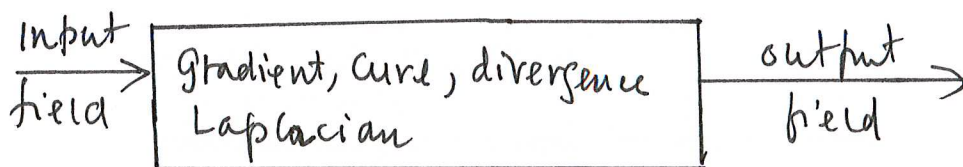 Input
field
gradient, curl, divergence
Laplacian
output
field